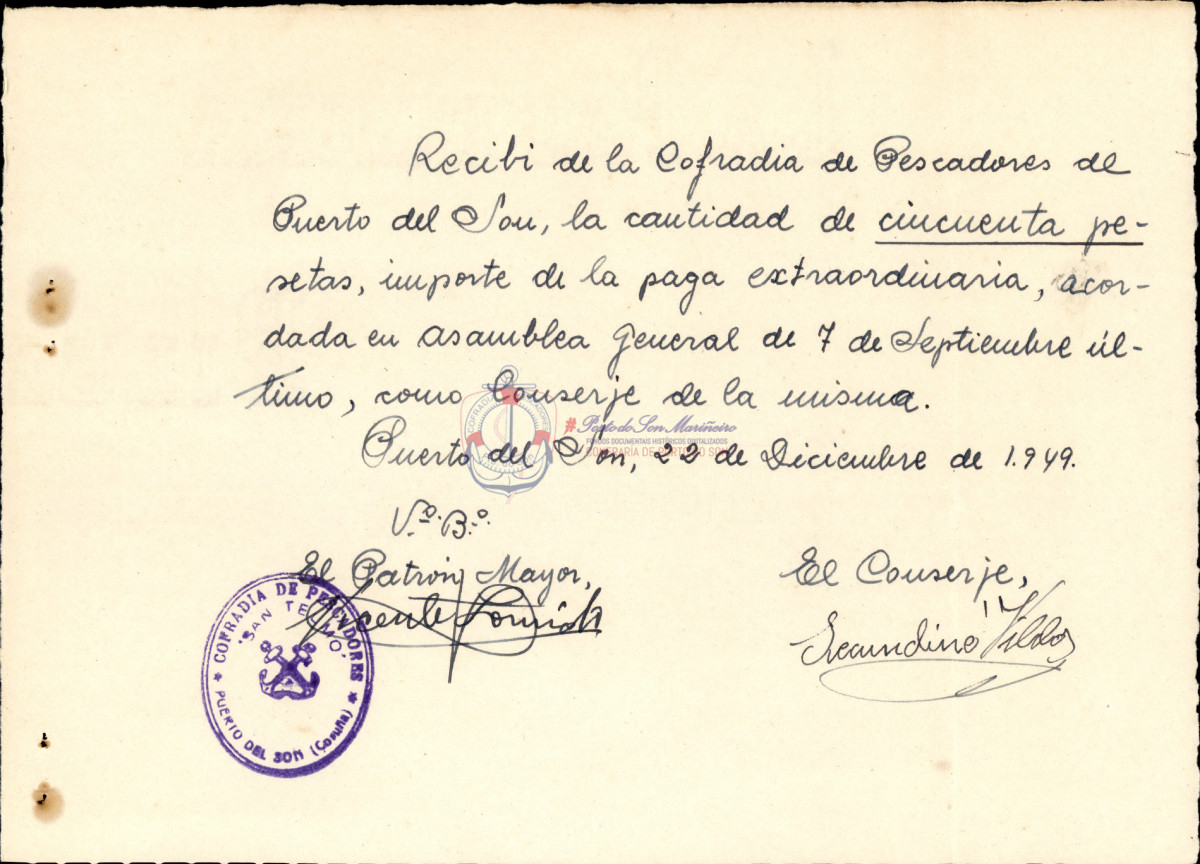 Recibi de la Cofradia de Pescadores de
Puerto del Son, la cantidad de cincuenta pe-
setas, importe de la paga extraordinaria, acor-
dada en Asamblea General de 7 de Septiembre úl-
timo, como Conserje de la misma.
#PortodoSon Mariñeiro
FONDOS DOCUMENTAIS HISTÓRICOS DIGITALIZADOS
CONFRARÍA DE PORTO DO SON
Puerto del Són, 22 de Diciembre de 1.949.
Vº. Bº.
El Patrón Mayor,
El Conserje,
Vicente
Secundino
COFRADIA DE PESCADORES
"SAN TELMO"
PUERTO DEL SON (Coruña)